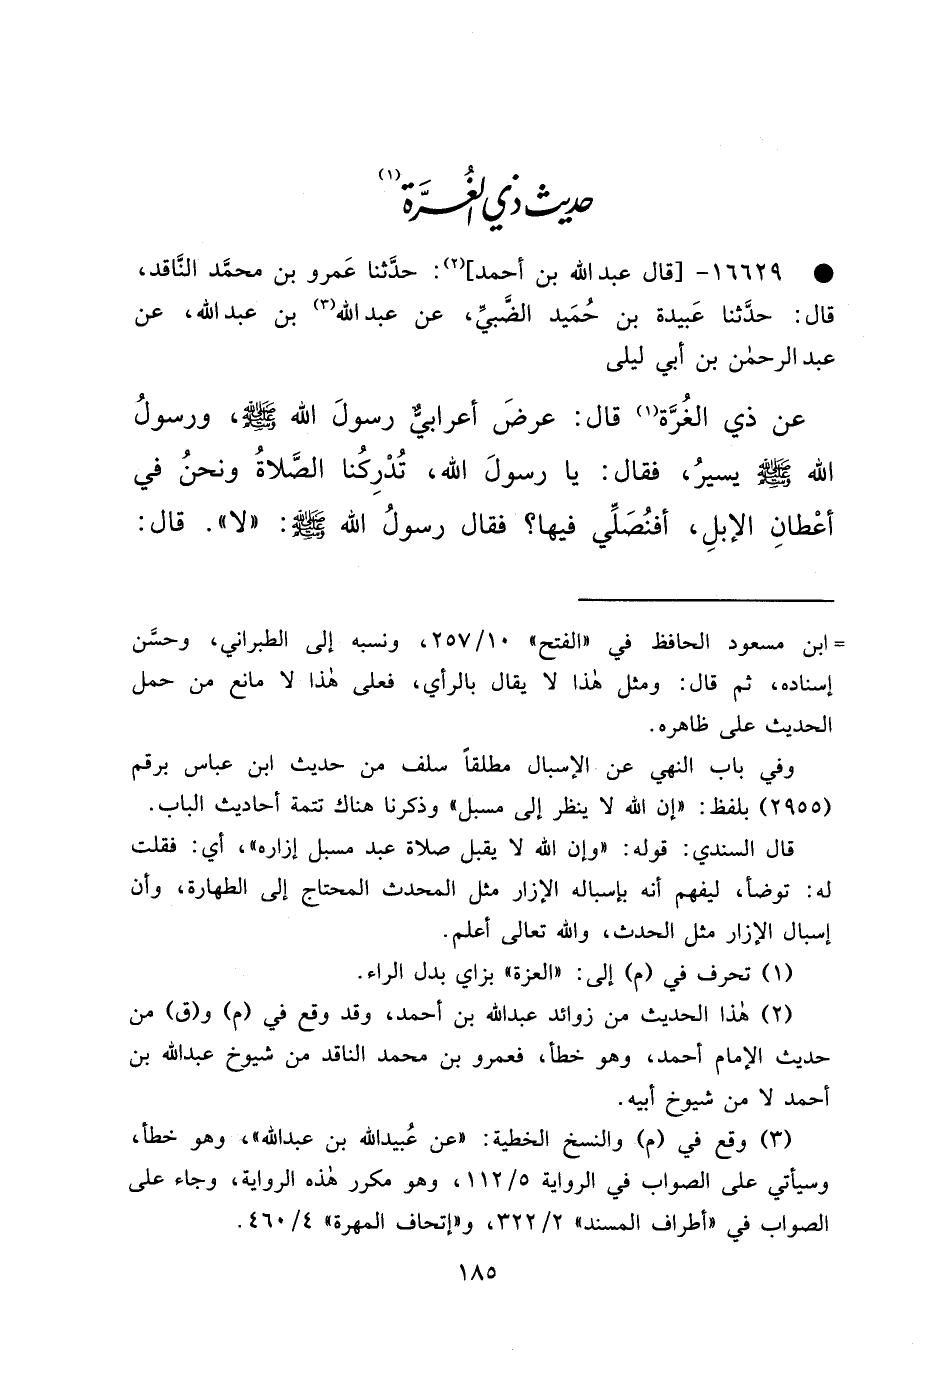 حديث ذي الغُرَّة(١)
● ١٦٦٢٩- [قال عبد الله بن أحمد](٢): حدَّثنا عَمرو بن محمَّد النَّاقد،
قال: حدَّثنا عَبيدة بن حُمَيد الضَّبيِّ، عن عبد الله(٣) بن عبد الله، عن
عبد الرحمٰن بن أبي ليلى
عن ذي الغُرَّة(١) قال: عرضَ أعرابيٌّ رسولَ الله ﷺ، ورسولُ
الله ﷺ يسيرُ، فقال: يا رسولَ الله، تُدْرِكُنا الصَّلاةُ ونحنُ في
أعْطانِ الإبلِ، أفنُصَلِّي فيها؟ فقال رسولُ الله ﷺ: «لا». قال:
= ابن مسعود الحافظ في «الفتح» ٢٥٧/١٠، ونسبه إلى الطبراني، وحسَّن
إسناده، ثم قال: ومثل هٰذا لا يقال بالرأي، فعلى هٰذا لا مانع من حمل
الحديث على ظاهره.
وفي باب النهي عن الإسبال مطلقاً سلف من حديث ابن عباس برقم
(٢٩٥٥) بلفظ: «إن الله لا ينظر إلى مسبل» وذكرنا هناك تتمة أحاديث الباب.
قال السندي: قوله: «وإن الله لا يقبل صلاة عبد مسبل إزاره»، أي: فقلت
له: توضأ، ليفهم أنه بإسباله الإزار مثل المحدث المحتاج إلى الطهارة، وأن
إسبال الإزار مثل الحدث، والله تعالى أعلم.
(١) تحرف في (م) إلى: «العزة» بزاي بدل الراء.
(٢) هٰذا الحديث من زوائد عبدالله بن أحمد، وقد وقع في (م) و(ق) من
حديث الإمام أحمد، وهو خطأ، فعمرو بن محمد الناقد من شيوخ عبدالله بن
أحمد لا من شيوخ أبيه.
(٣) وقع في (م) والنسخ الخطية: «عن عُبيدالله بن عبدالله»، وهو خطأ،
وسيأتي على الصواب في الرواية ١١٢/٥، وهو مكرر هٰذه الرواية، وجاء على
الصواب في «أطراف المسند» ٣٢٢/٢، و«إتحاف المهرة» ٤٦٠/٤.
١٨٥